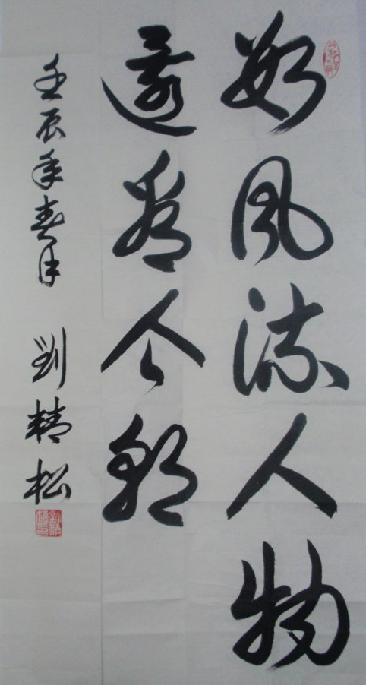 数风流人物
還看今朝
壬辰年春月 劉精松